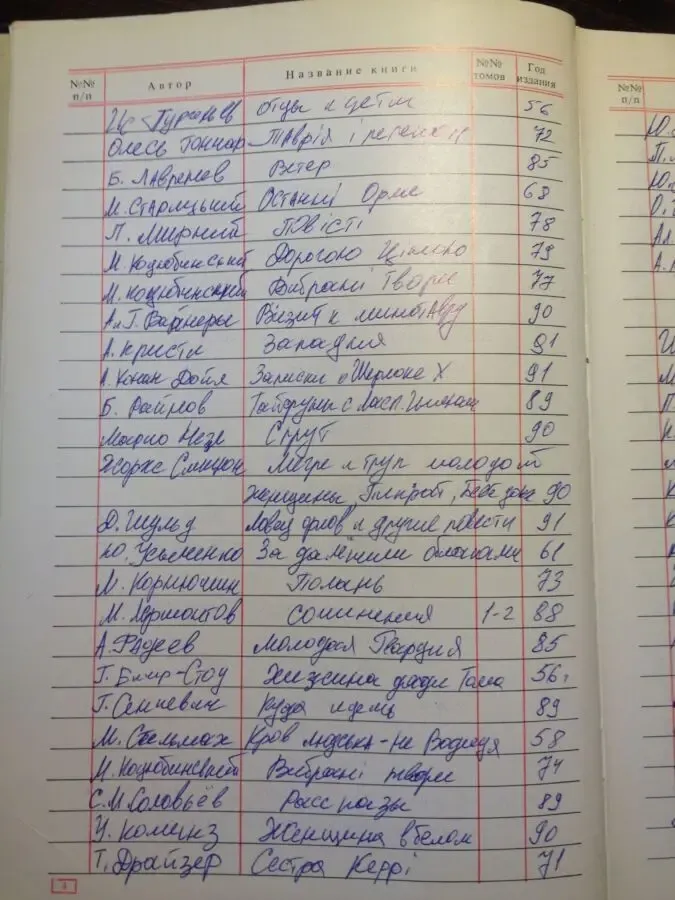 №№ п/п Автор Название книги №№ томов Год издания №№ п/п
Ив. Тургенев отцы и дети 56
Олесь Гончар Таврія і 72
Б. Лавренев Ветер 85
М. Старицький Останні Орли 68
П. Мирний Повісті 78
М. Коцюбинський Дорогою Ціною 79
М. Коцюбинський Вибрані Твори 77
А и Г. Вайнеры Визит к минотавру 90
А. Кристи Западня 91
А. Конан Дойл Записки о Шерлоке Х 91
Б. Райнов Тайфуны с ласк. именами 89
Марио Спрут 90
Жорж Сименон Мегре и труп молодой
женщины, 90
Д. Шульц Ловец орлов и другие повести 91
Ю. Усыченко За далекими облаками 61
М. Корнюшин Полань 73
М. Лермонтов сочинения 1-2 88
А. Фадеев Молодая Гвардия 85
Г. Бичер-Стоу Хижина дяди Тома 56г
Г. Сенкевич Куда идешь 89
М. Стельмах Кров людська - не Водиця 58
М. Коцюбинський Вибрані твори 74
С.М. Соловьёв Рассказы 89
У. Коллинз Женщина в белом 90
Т. Драйзер Сестра Керрі 71
4